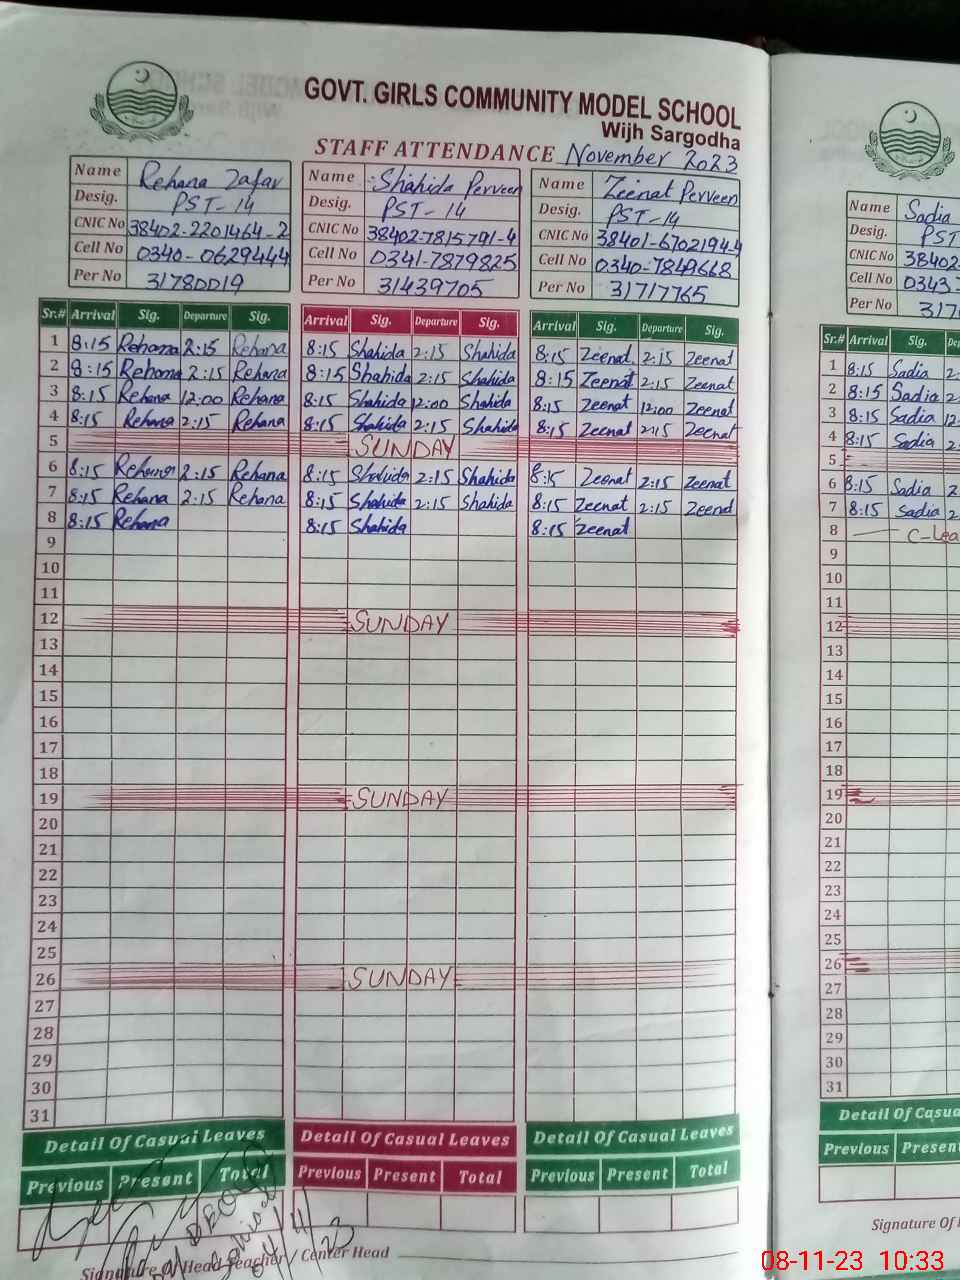 GOVT. GIRLS COMMUNITY MODEL SCHOOL
Wijh Sargodha
STAFF ATTENDANCE November 2023
Name Rehana Zafar
Desig. PST-14
CNIC No 38402-2201464-2
Cell No 0340-0629444
Per No 31780019
Name Shahida Perveen
Desig. PST-14
CNIC No 38402-7815791-4
Cell No 0341-7879825
Per No 31439705
Name Zeenat Perveen
Desig. PST-14
CNIC No 38401-6702194-4
Cell No 0340-7849668
Per No 31717765
Sr.# Arrival Sig. Departure Sig. Arrival Sig. Departure Sig. Arrival Sig. Departure Sig.
1 8:15 Rehana 2:15 Rehana 8:15 Shahida 2:15 Shahida 8:15 Zeenat 2:15 Zeenat
2 8:15 Rehana 2:15 Rehana 8:15 Shahida 2:15 Shahida 8:15 Zeenat 2:15 Zeenat
3 8:15 Rehana 12:00 Rehana 8:15 Shahida 12:00 Shahida 8:15 Zeenat 12:00 Zeenat
4 8:15 Rehana 2:15 Rehana 8:15 Shahida 2:15 Shahida 8:15 Zeenat 2:15 Zeenat
5 SUNDAY
6 8:15 Rehana 2:15 Rehana 8:15 Shahida 2:15 Shahida 8:15 Zeenat 2:15 Zeenat
7 8:15 Rehana 2:15 Rehana 8:15 Shahida 2:15 Shahida 8:15 Zeenat 2:15 Zeenat
8 8:15 Rehana 8:15 Shahida 8:15 Zeenat
9
10
11
12 SUNDAY
13
14
15
16
17
18
19 SUNDAY
20
21
22
23
24
25
26 SUNDAY
27
28
29
30
31
Detail Of Casual Leaves Detail Of Casual Leaves Detail Of Casual Leaves
Previous Present Total Previous Present Total Previous Present Total
Signature Of Head Teacher / Center Head
Name Sadia
Desig. PST
CNIC No 38402
Cell No 0343
Per No 317
Sr.# Arrival Sig.
1 8:15 Sadia 2
2 8:15 Sadia 2
3 8:15 Sadia 12
4 8:15 Sadia 2
5
6 8:15 Sadia 2
7 8:15 Sadia 2
8 C-Lea
9
10
11
12
13
14
15
16
17
18
19
20
21
22
23
24
25
26
27
28
29
30
31
Detail Of Casua
Previous Presen
Signature Of
08-11-23 10:33